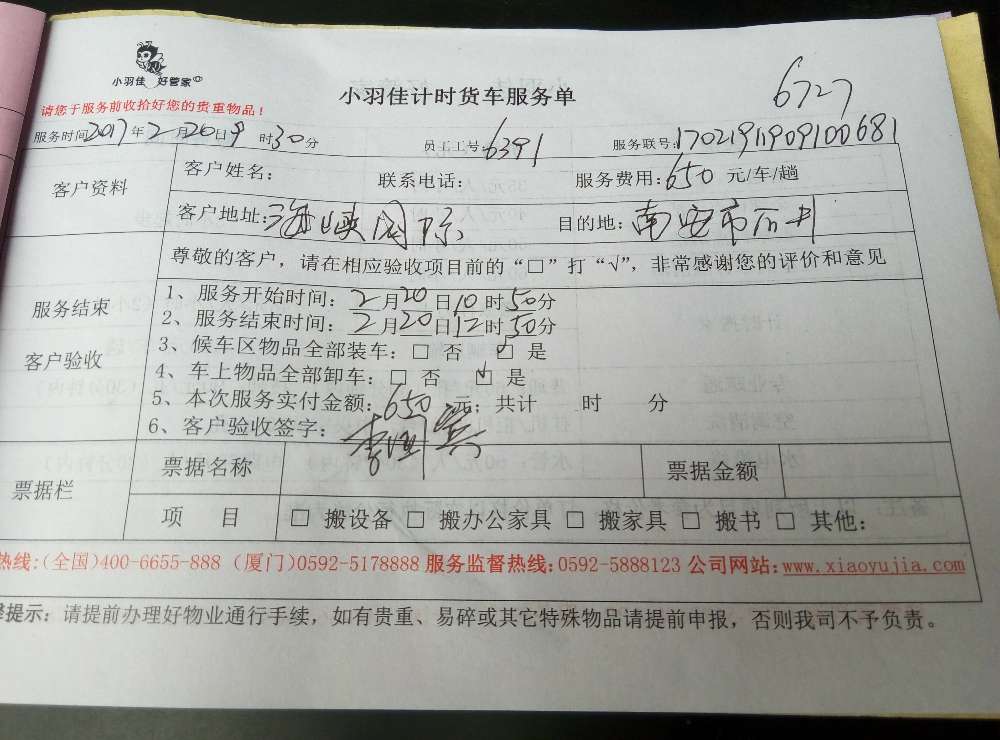 小羽佳 好管家
小羽佳计时货车服务单
6727
请您于服务前收拾好您的贵重物品！
服务时间2017年2月20日9时30分 员工工号:6391 服务联号:1702191190910068​1
客户资料
客户姓名： 联系电话： 服务费用:650 元/车/趟
客户地址:海峡国际 目的地:南安市石井
尊敬的客户，请在相应验收项目前的“□”打“√”，非常感谢您的评价和意见
服务结束
客户验收
1、服务开始时间：2月20日10时50分
2、服务结束时间：2月20日12时50分
3、候车区物品全部装车：□ 否 ☑ 是
4、车上物品全部卸车：□ 否 ☑ 是
5、本次服务实付金额：650 元；共计 时 分
6、客户验收签字：
票据栏
票据名称 票据金额
项 目 □ 搬设备 □ 搬办公家具 □ 搬家具 □ 搬书 □ 其他：
热线:(全国)400-6655-888 (厦门)0592-5178888 服务监督热线:0592-5888123 公司网站:www.xiaoyujia.com
提示：请提前办理好物业通行手续，如有贵重、易碎或其它特殊物品请提前申报，否则我司不予负责。